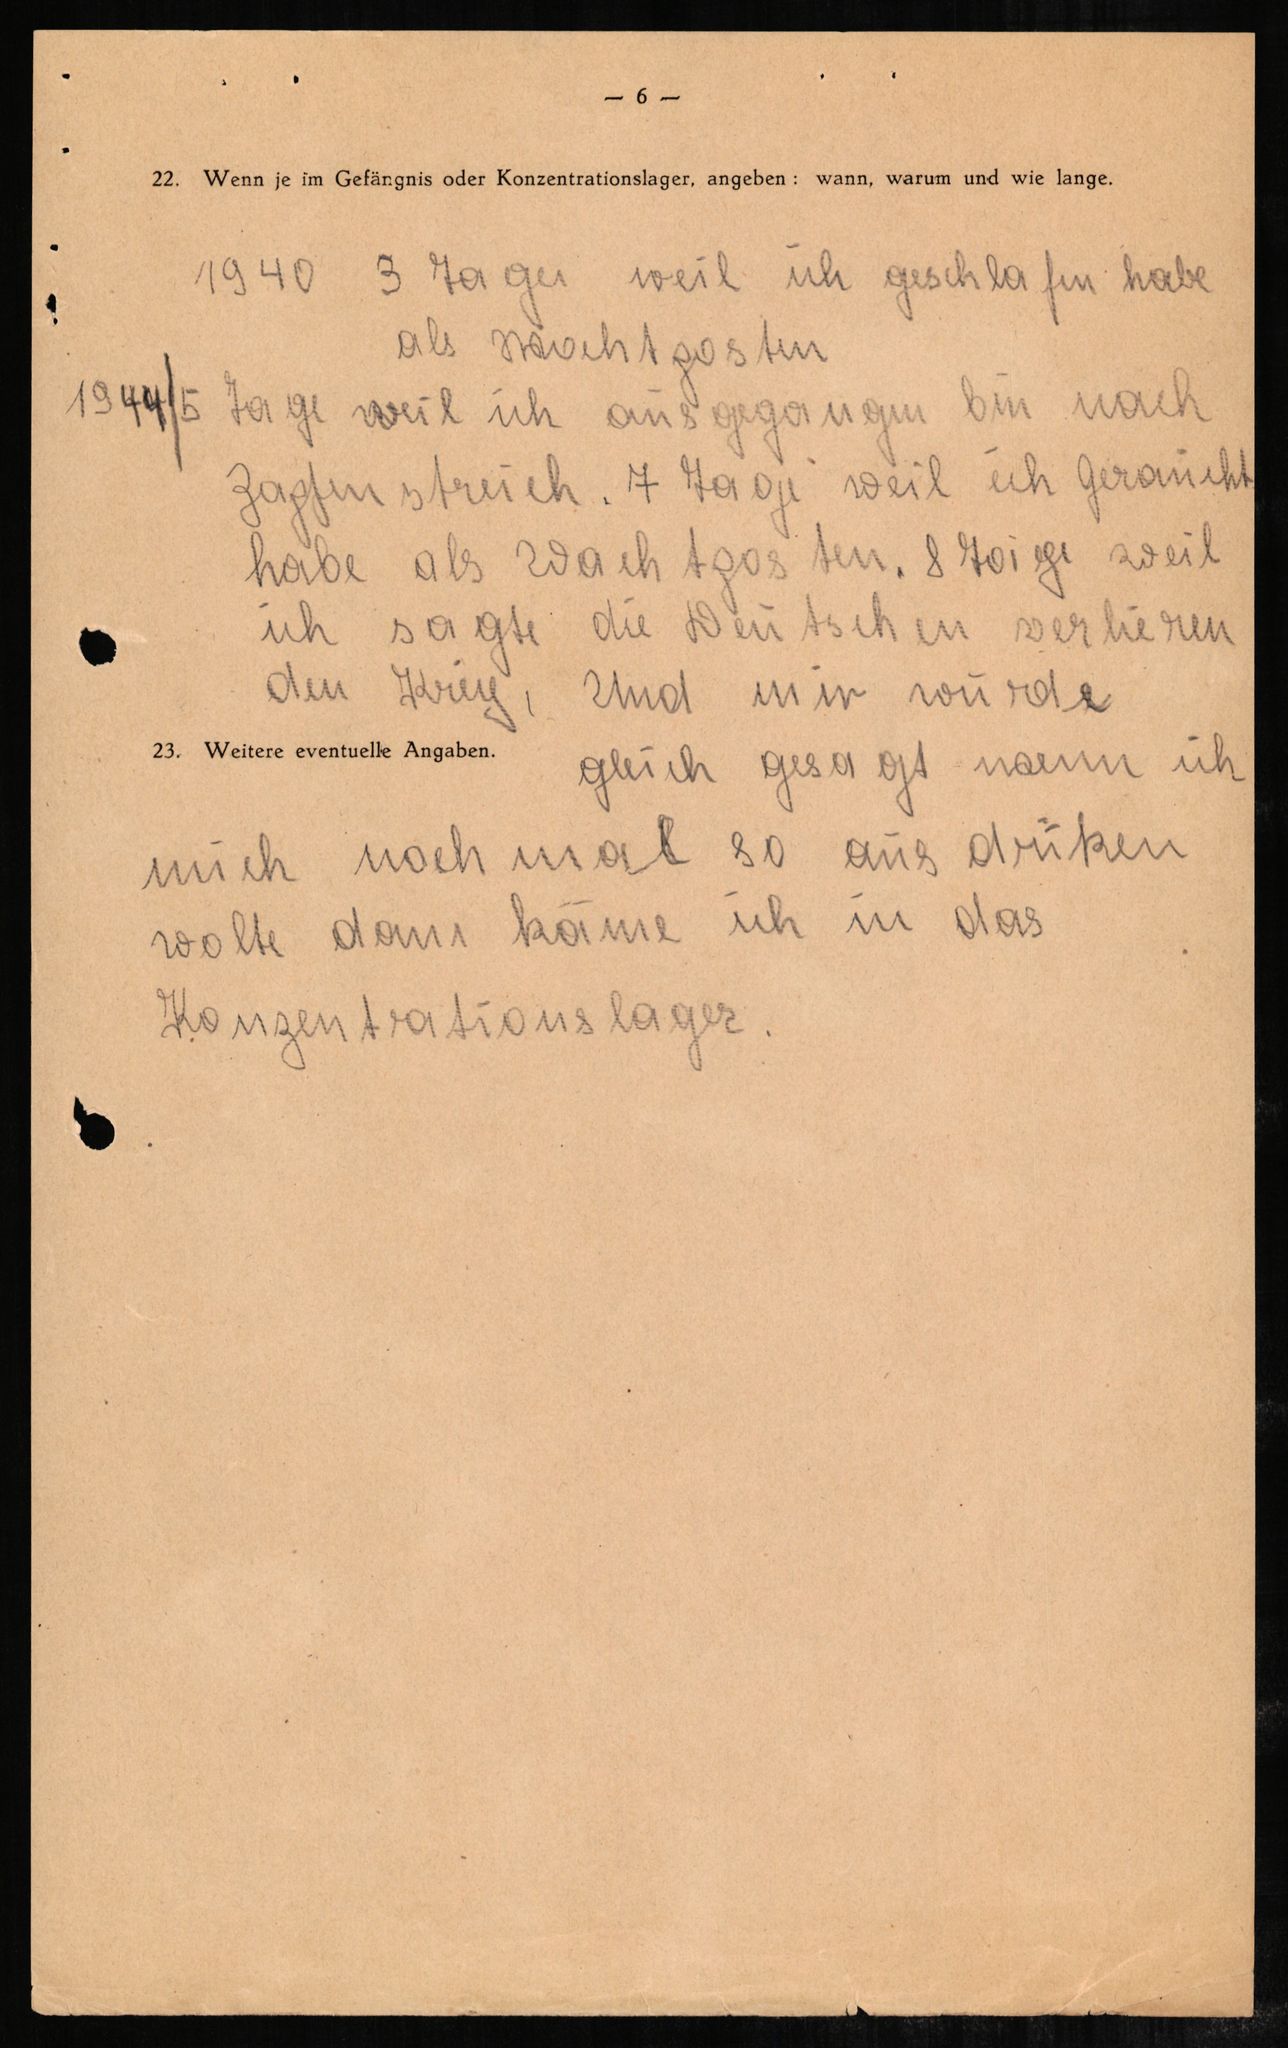 — 6 —
22. Wenn je im Gefängnis oder Konzentrationslager, angeben : wann, warum und wie lange.
1940 3 Tage weil ich geschlafen habe
als Wachtposten
1944/5 Tage weil ich ausgegangen bin nach
Zapfenstreich. 7 Tage weil ich Geraucht
habe als Wachtposten. 8 Tage weil
ich sagte die Deutschen verlieren
den Krieg, Und mir wurde
23. Weitere eventuelle Angaben.
gleich gesagt wenn ich
mich nochmal so ausdrüken
wolte dann käme ich in das
Konzentrationslager.